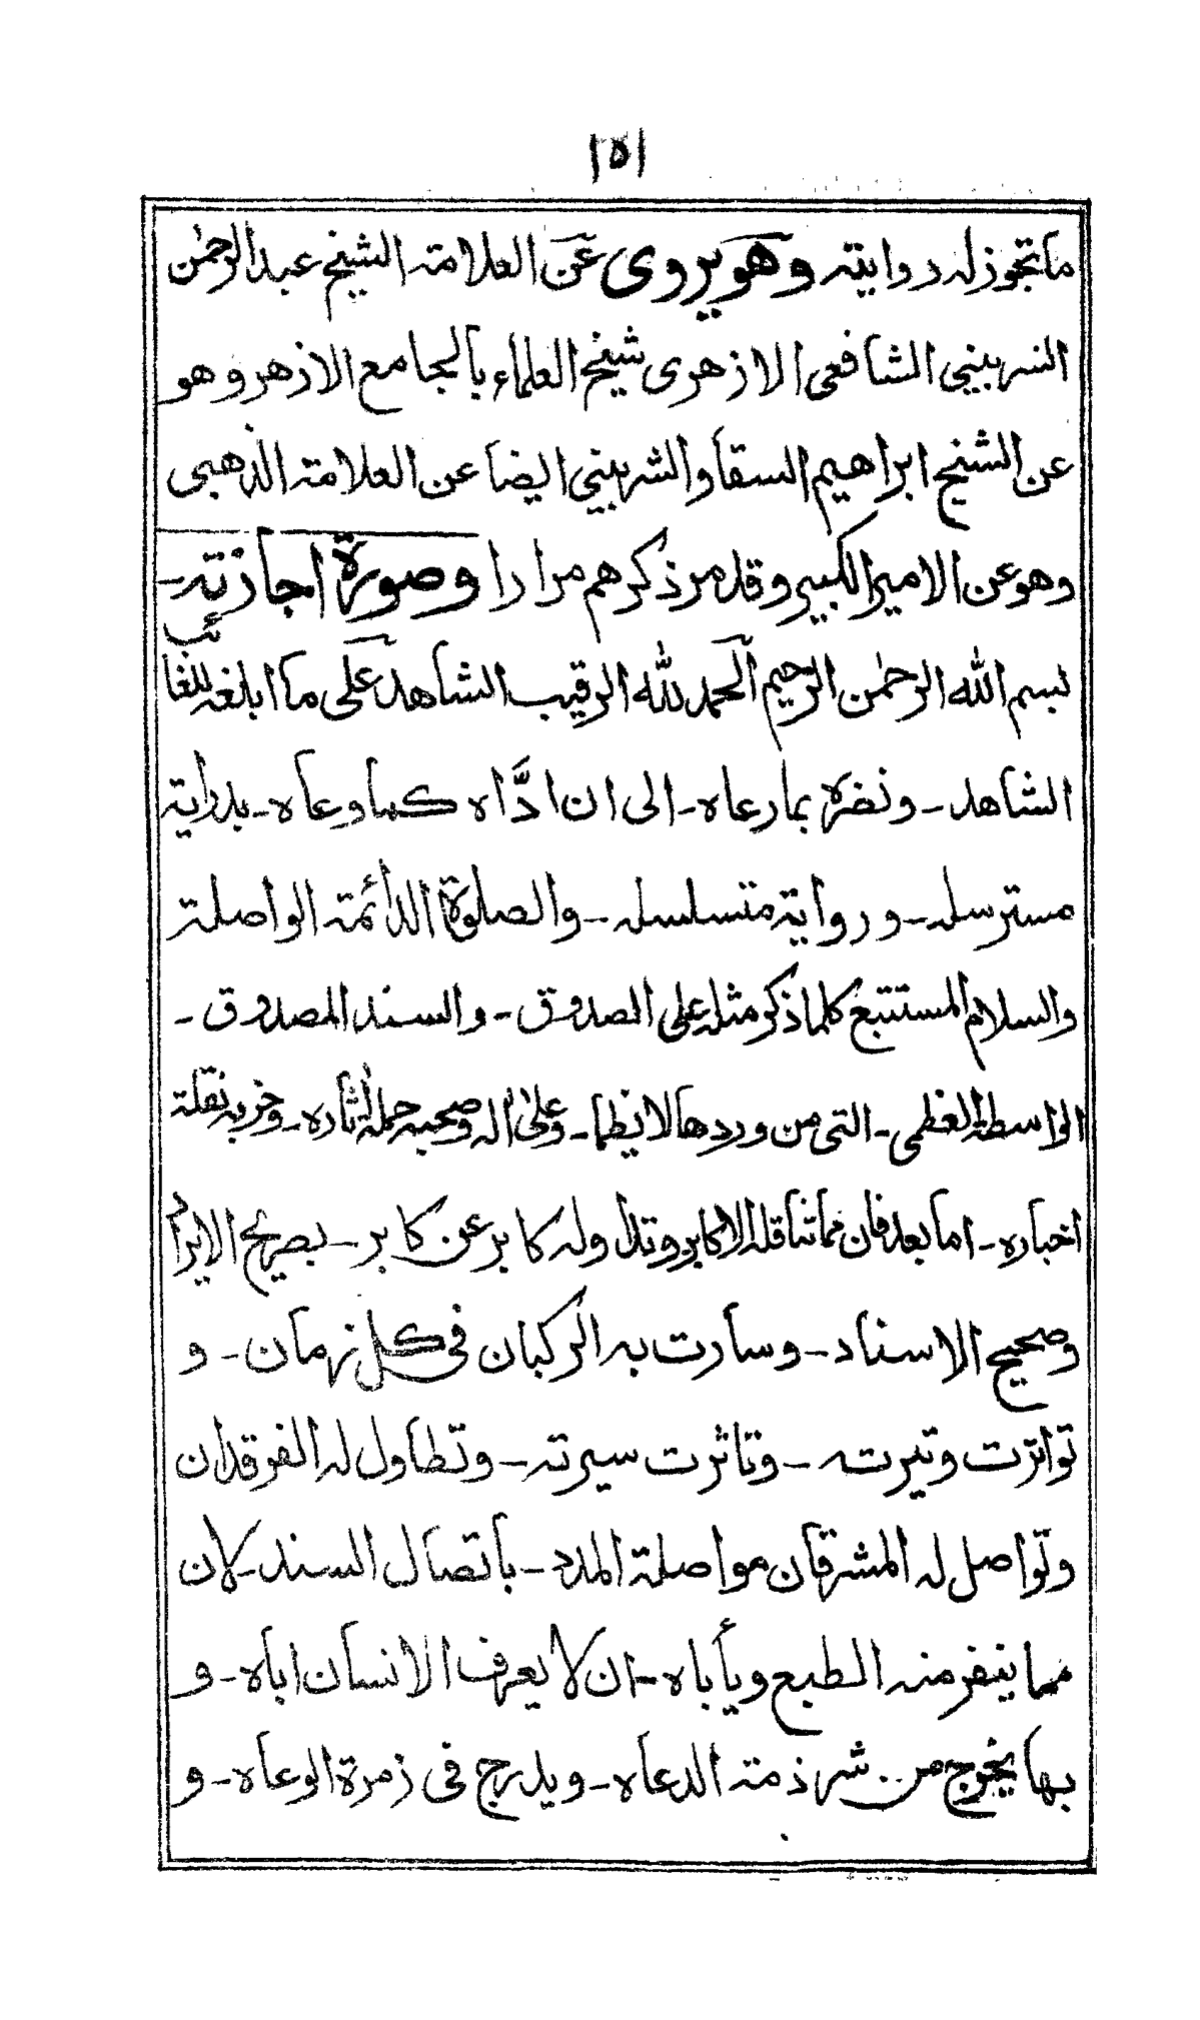 ١٥١
ما تجوز له روايته وهو يروى عن العلامة الشيخ عبد الرحمٰن
الشربيني الشافعى الازهرى شيخ العلماء بالجامع الازهر وهو
عن الشيخ ابراهيم السقا والشربيني ايضا عن العلامة الذهبى
وهو عن الامير الكبير وقد مر ذكرهم مرارا وصورة اجازته-
بسم الله الرحمٰن الرحيم الحمد لله الرقيب الشاهد على ما ابلغه للغائب
الشاهد - ونضره بما رعاه - الى ان ادَّاه كما وعاه - بدراية
مسترسله - ورواية متسلسله - والصلوة الدائمة الواصلة
والسلام المستتبع كلما ذكر مثله على الصدوق - والسند المصدوق -
الواسطة العظمى - التى من وردها لا يظما - وعلىٰ اله وصحبه حملة اٰثاره - وخزنة نقلة
اخباره - اما بعد فان مما تناقله الاكابر وتداوله كابر عن كابر - بصريح الايراد
وصحيح الاسناد - وسارت به الركبان فى كل زمان - و
تواترت وتيرته - وتاثرت سيرته - وتطاول له الفرقدان
وتواصل له المشرقان مواصلة المدد - باتصال السند - لان
مما ينفر منه الطبع ويأباه - ان لا يعرف الانسان اباه - و
بها يخرج من شرذمة الدعاه - ويدرج فى زمرة الوعاه - و